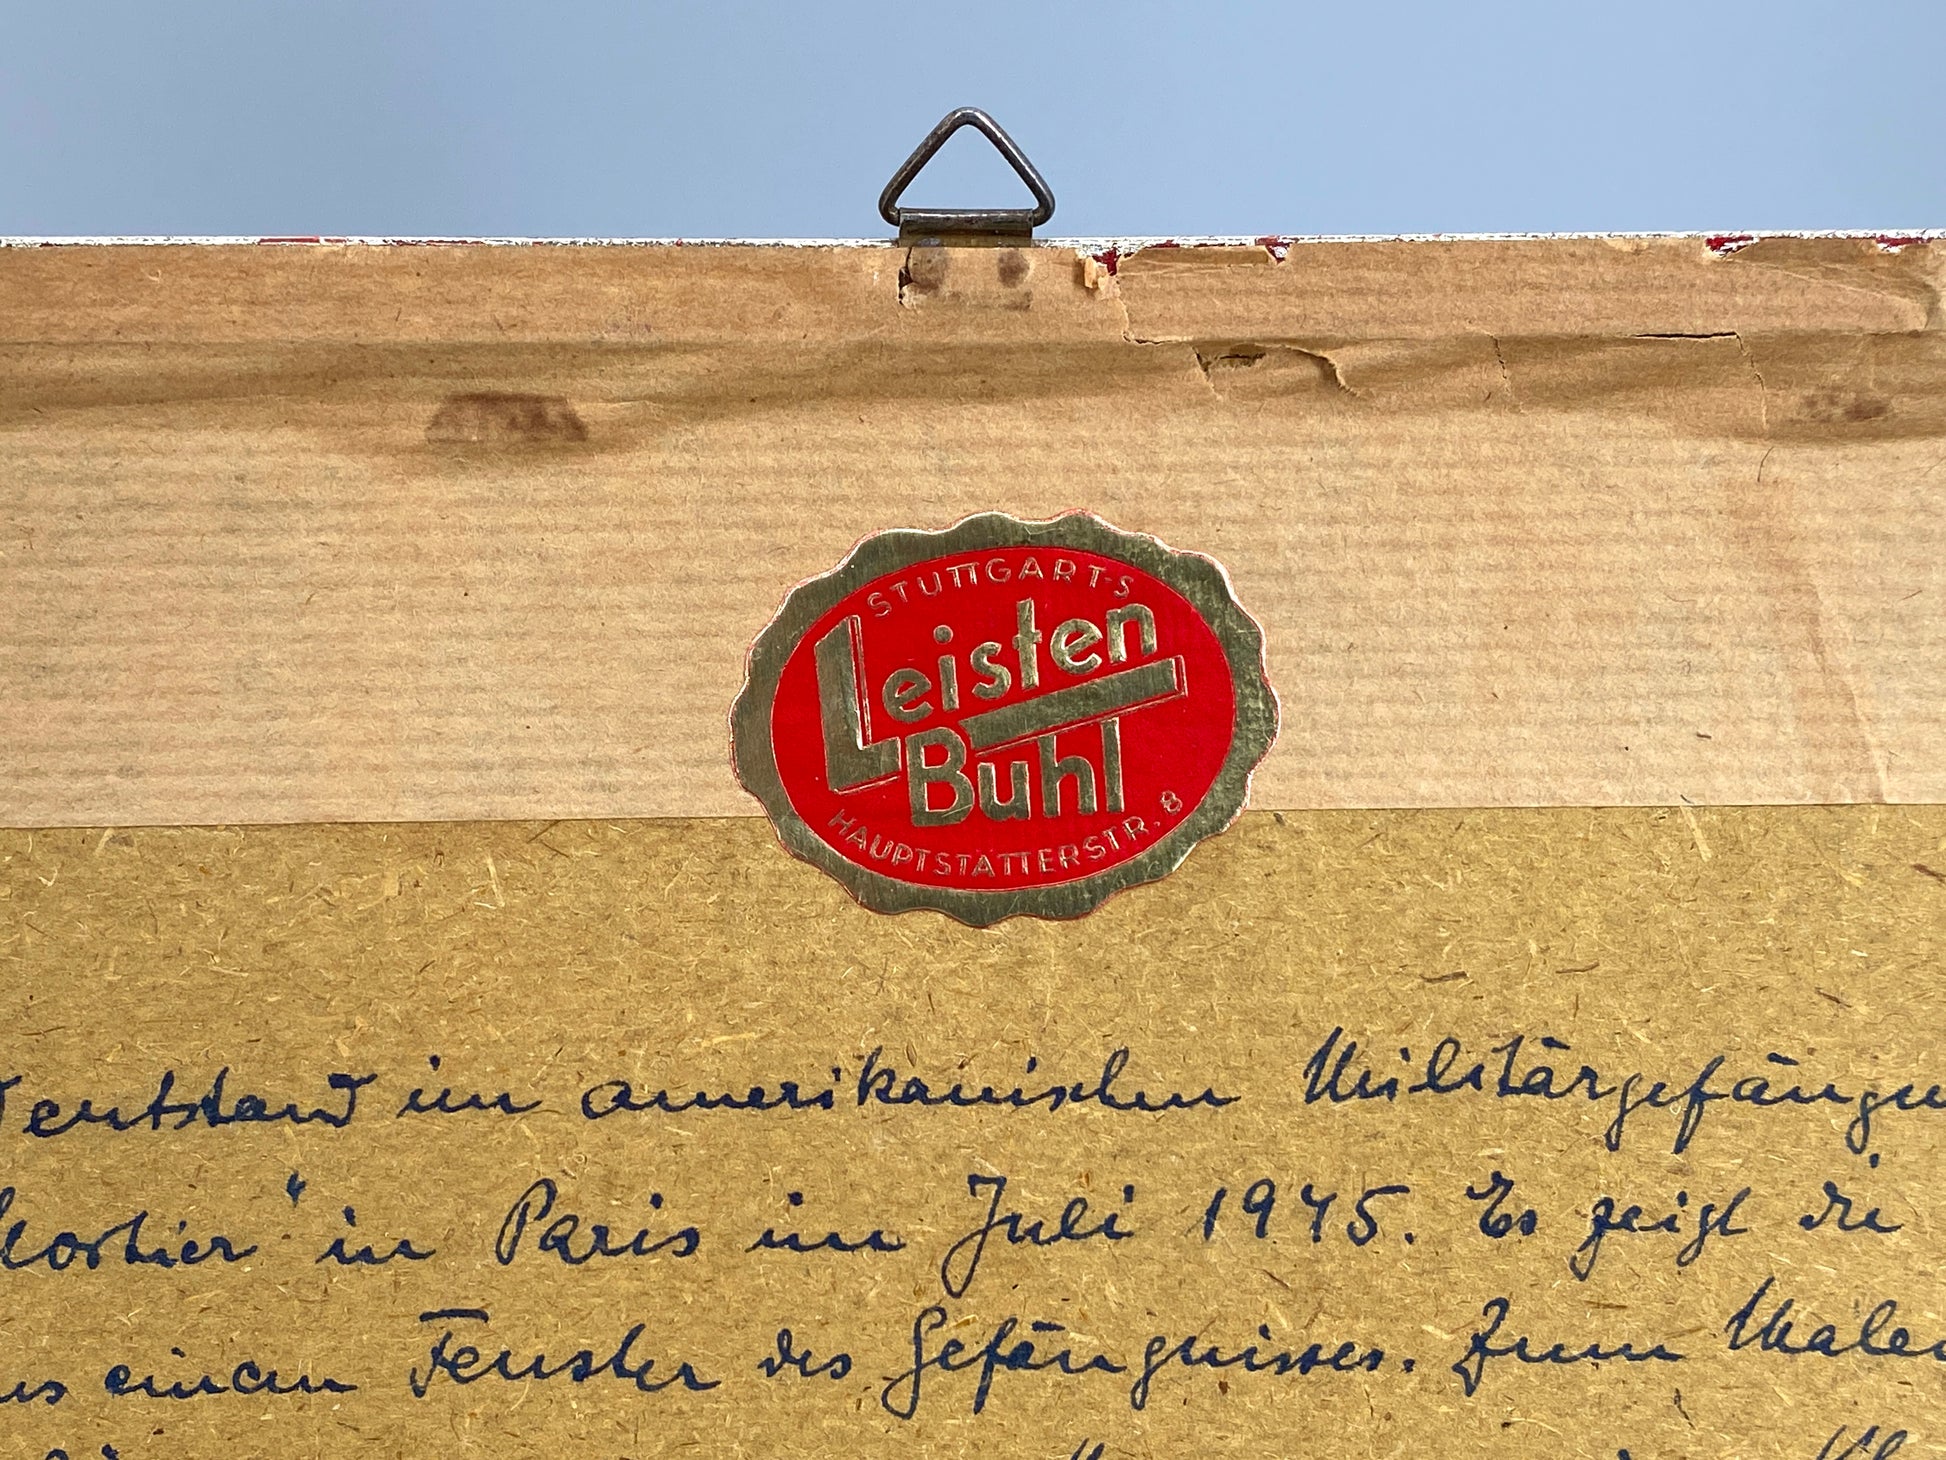 STUTTGART-S
Leisten
Buhl
HAUPTSTATTERSTR. 8
entstand im amerikanischen Militärgefängn
Mortier" in Paris im Juli 1945. Es zeigt die
us einem Fenster des Gefängnisses. Zum Malen